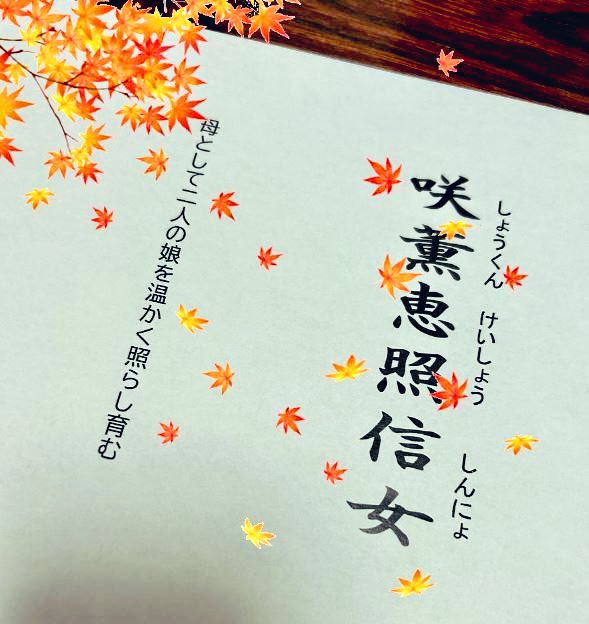 しょうくん　けいしょう　しんにょ
咲薫恵照信女
母として二人の娘を温かく照らし育む